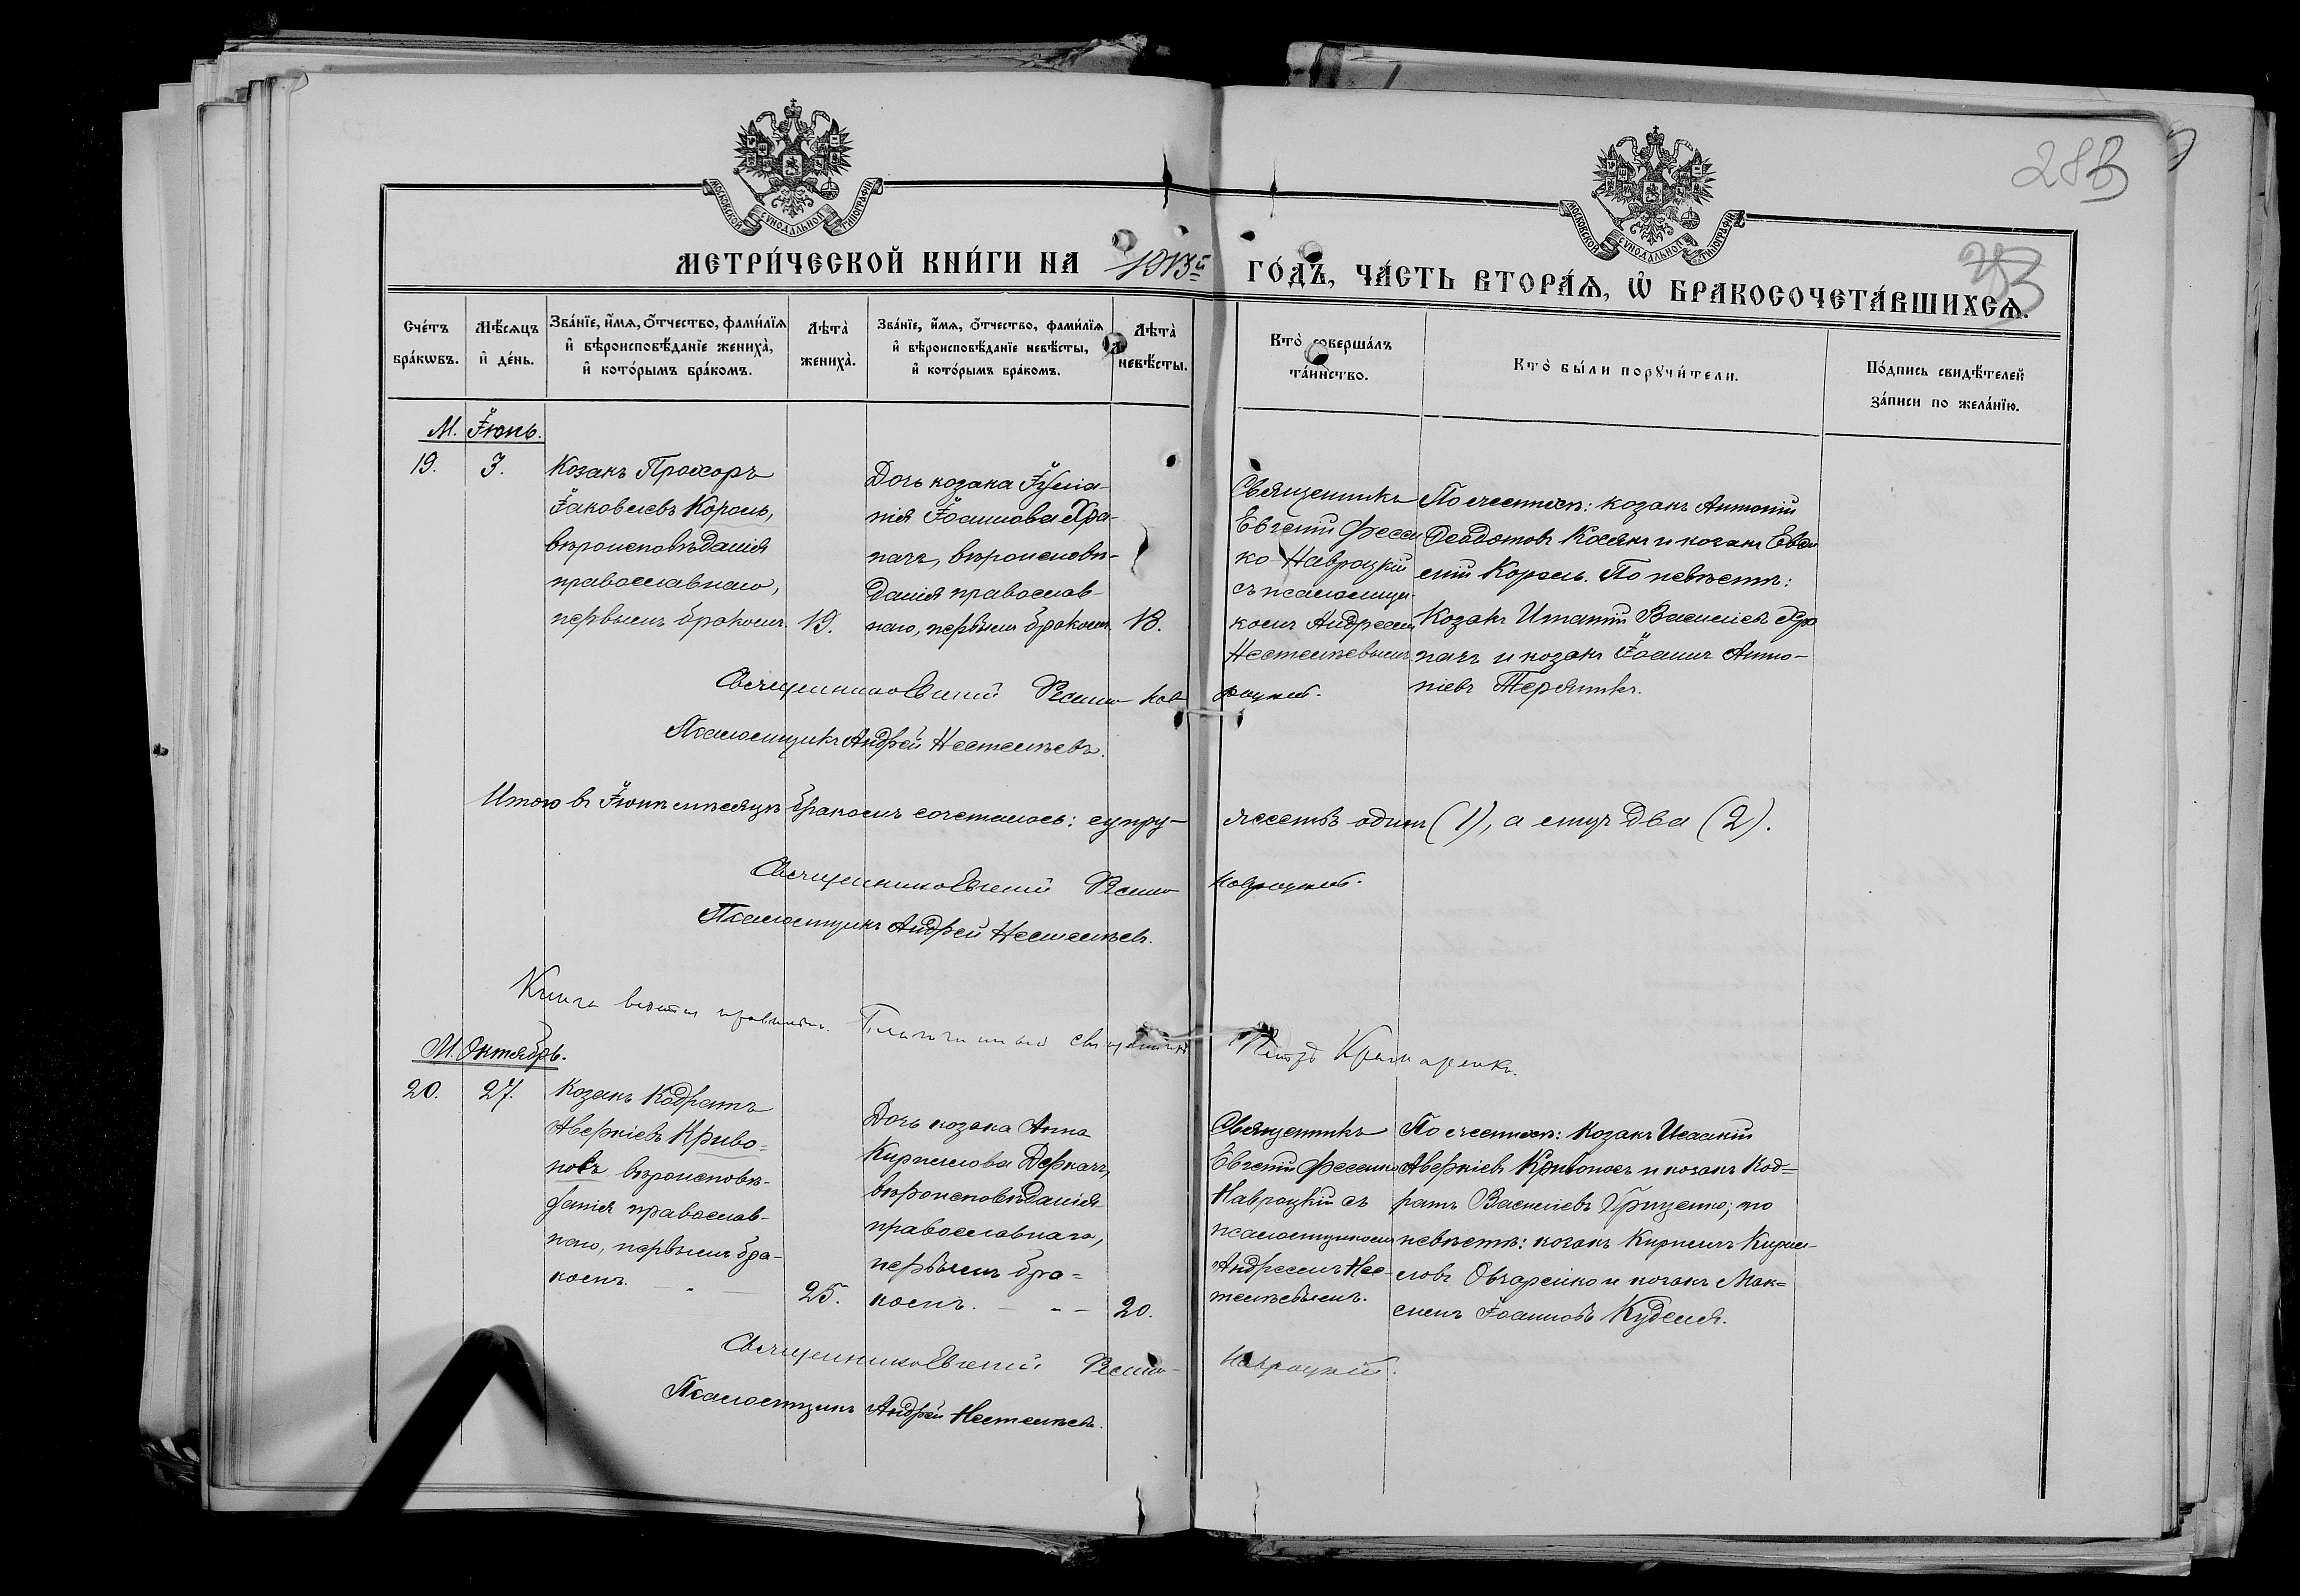 МОСКОВСКОЙ СѴНОДАЛЬНОЙ ТИПОГРАФІИ
МОСКОВСКОЙ СѴНОДАЛЬНОЙ ТИПОГРАФІИ
283
МЕТРИ́ЧЕСКОЙ КНИ́ГИ НА 1913й ГО́ДЪ, ЧА́СТЬ ВТОРА́Ѧ, Ѡ҆ БРАКОСОЧЕТА́ВШИХСѦ.
Сче́тъ бра́кѡвъ.
Мѣ́сѧцъ и҆ де́нь.
Зва́нїе, и҆́мѧ, ѻ҆́тчество, фами́лїѧ
и҆ вѣроисповѣ́данїе жениха̀,
и҆ кото́рымъ бра́комъ.
Лѣта̀ жениха̀.
Зва́нїе, и҆́мѧ, ѻ҆́тчество, фами́лїѧ
и҆ вѣроисповѣ́данїе невѣ́сты,
и҆ кото́рымъ бра́комъ.
Лѣта̀ невѣ́сты.
Кто̀ соверша́лъ та́инство.
Кто̀ бы́ли порꙋчи́тели.
По́дпись свидѣ́телей
за́писи по жела́нїю.
М. Іюнь.
19.
3.
Козакъ Прохоръ
Іаковлевъ Король,
вѣроисповѣданія
православнаго,
первымъ бракомъ
19.
Дочь козака Іуліа-
нія Іоаннова Хра-
пачъ, вѣроисповѣ-
данія православ-
наго, первымъ бракомъ.
18.
Священникъ
Евгеній Фесен
ко-Навроцкій
съ псаломщи-
комъ Андреемъ
Нестелѣевымъ
По женихѣ: козакъ Антоній
Ѳеодотовъ Косякъ и козакъ Евѳи
мій Король. По невѣстѣ:
Козакъ Игнатій Василіевъ Хра
пачъ и козакъ Іоаннъ Анто-
ніевъ
Священникъ Евгеній Фесенко-Навроцкій.
Псаломщикъ Андрей Нестелѣевъ.
Итого въ Іюнѣ мѣсяцѣ бракомъ сочеталось: супру-жествъ одинъ (1), а лицъ два (2).
Священникъ Евгеній Фесенко-Навроцкій.
Псаломщикъ Андрей Нестелѣевъ.
Книга ведется правильно. Благочинный священникъ Петръ Крамаренко.
М. Октябрь.
20.
27.
Козакъ Кодратъ
Аверкіевъ Криво-
носъ вѣроисповѣ-
данія православ-
наго, первымъ бра-
комъ.
25.
Дочь козака Анна
Кириллова Деркачъ,
вѣроисповѣданія
православнаго,
первымъ бра-
комъ.
20.
Священникъ
Евгеній Фесенко
Навроцкій съ
псаломщикомъ
Андреемъ Нес-
телѣевымъ.
По женихѣ: Козакъ Исаакій
Аверкіевъ Кривоносъ и козакъ Код-
ратъ Василіевъ Гриценко; по
невѣстѣ: козакъ Кириллъ Кирил-
ловъ Овчаренко и козакъ Мак-
симъ Іоанновъ Куделя.
Священникъ Евгеній Фесенко-Навроцкій.
Псаломщикъ Андрей Нестелѣевъ.